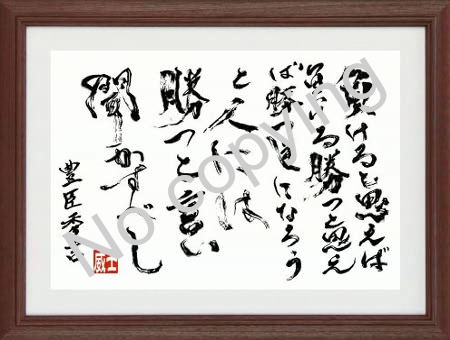 負けると思えば
負ける勝つと思え
ば勝つ逆になろう
と人には
勝つと言い
聞かすべし
豊臣秀吉
No copying